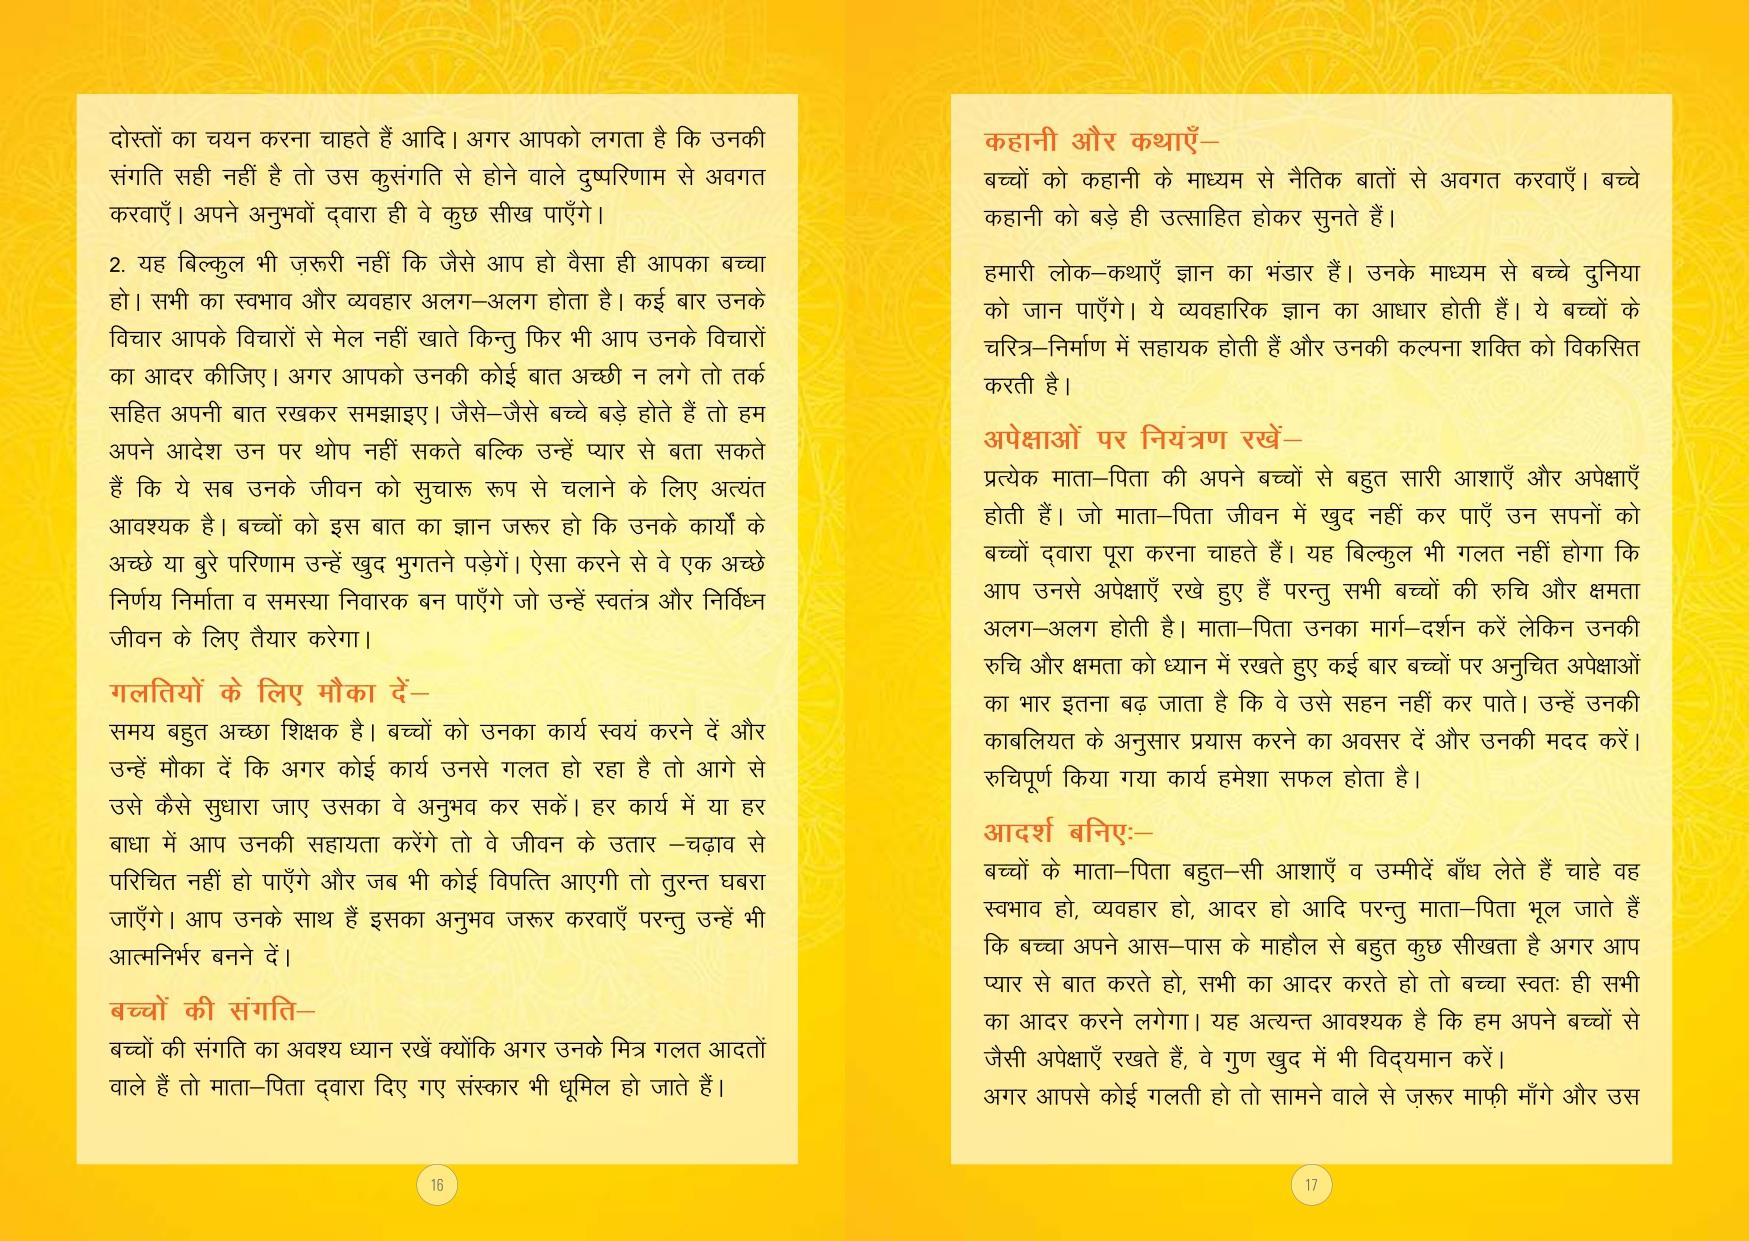 दोस्तों का चयन करना चाहते हैं आदि। अगर आपको लगता है कि उनकी
संगति सही नहीं है तो उस कुसंगति से होने वाले दुष्परिणाम से अवगत
करवाएँ। अपने अनुभवों द्वारा ही वे कुछ सीख पाएँगे।
2. यह बिल्कुल भी ज़रूरी नहीं कि जैसे आप हो वैसा ही आपका बच्चा
हो। सभी का स्वभाव और व्यवहार अलग–अलग होता है। कई बार उनके
विचार आपके विचारों से मेल नहीं खाते किन्तु फिर भी आप उनके विचारों
का आदर कीजिए। अगर आपको उनकी कोई बात अच्छी न लगे तो तर्क
सहित अपनी बात रखकर समझाइए। जैसे–जैसे बच्चे बड़े होते हैं तो हम
अपने आदेश उन पर थोप नहीं सकते बल्कि उन्हें प्यार से बता सकते
हैं कि ये सब उनके जीवन को सुचारू रूप से चलाने के लिए अत्यंत
आवश्यक है। बच्चों को इस बात का ज्ञान जरूर हो कि उनके कार्यों के
अच्छे या बुरे परिणाम उन्हें खुद भुगतने पड़ेगें। ऐसा करने से वे एक अच्छे
निर्णय निर्माता व समस्या निवारक बन पाएँगे जो उन्हें स्वतंत्र और निर्विध्न
जीवन के लिए तैयार करेगा।
गलतियों के लिए मौका दें–
समय बहुत अच्छा शिक्षक है। बच्चों को उनका कार्य स्वयं करने दें और
उन्हें मौका दें कि अगर कोई कार्य उनसे गलत हो रहा है तो आगे से
उसे कैसे सुधारा जाए उसका वे अनुभव कर सकें। हर कार्य में या हर
बाधा में आप उनकी सहायता करेंगे तो वे जीवन के उतार –चढ़ाव से
परिचित नहीं हो पाएँगे और जब भी कोई विपत्ति आएगी तो तुरन्त घबरा
जाएँगे। आप उनके साथ हैं इसका अनुभव जरूर करवाएँ परन्तु उन्हें भी
आत्मनिर्भर बनने दें।
बच्चों की संगति–
बच्चों की संगति का अवश्य ध्यान रखें क्योंकि अगर उनके मित्र गलत आदतों
वाले हैं तो माता–पिता द्वारा दिए गए संस्कार भी धूमिल हो जाते हैं।
16
कहानी और कथाएँ–
बच्चों को कहानी के माध्यम से नैतिक बातों से अवगत करवाएँ। बच्चे
कहानी को बड़े ही उत्साहित होकर सुनते हैं।
हमारी लोक–कथाएँ ज्ञान का भंडार हैं। उनके माध्यम से बच्चे दुनिया
को जान पाएँगे। ये व्यवहारिक ज्ञान का आधार होती हैं। ये बच्चों के
चरित्र–निर्माण में सहायक होती हैं और उनकी कल्पना शक्ति को विकसित
करती है।
अपेक्षाओं पर नियंत्रण रखें–
प्रत्येक माता–पिता की अपने बच्चों से बहुत सारी आशाएँ और अपेक्षाएँ
होती हैं। जो माता–पिता जीवन में खुद नहीं कर पाएँ उन सपनों को
बच्चों द्वारा पूरा करना चाहते हैं। यह बिल्कुल भी गलत नहीं होगा कि
आप उनसे अपेक्षाएँ रखे हुए हैं परन्तु सभी बच्चों की रुचि और क्षमता
अलग–अलग होती है। माता–पिता उनका मार्ग–दर्शन करें लेकिन उनकी
रुचि और क्षमता को ध्यान में रखते हुए कई बार बच्चों पर अनुचित अपेक्षाओं
का भार इतना बढ़ जाता है कि वे उसे सहन नहीं कर पाते। उन्हें उनकी
काबलियत के अनुसार प्रयास करने का अवसर दें और उनकी मदद करें।
रुचिपूर्ण किया गया कार्य हमेशा सफल होता है।
आदर्श बनिएः–
बच्चों के माता–पिता बहुत–सी आशाएँ व उम्मीदें बाँध लेते हैं चाहे वह
स्वभाव हो, व्यवहार हो, आदर हो आदि परन्तु माता–पिता भूल जाते हैं
कि बच्चा अपने आस–पास के माहौल से बहुत कुछ सीखता है अगर आप
प्यार से बात करते हो, सभी का आदर करते हो तो बच्चा स्वतः ही सभी
का आदर करने लगेगा। यह अत्यन्त आवश्यक है कि हम अपने बच्चों से
जैसी अपेक्षाएँ रखते हैं, वे गुण खुद में भी विद्यमान करें।
अगर आपसे कोई गलती हो तो सामने वाले से ज़रूर माफ़ी माँगे और उस
17